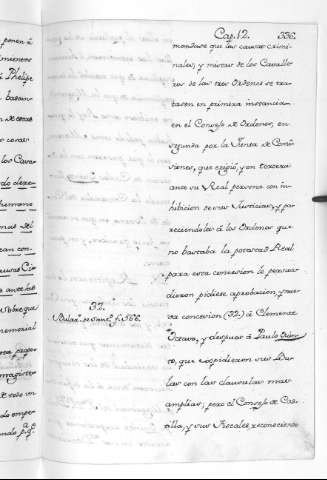 Cap. 12. 336.
mandase que las causas crimi-
nales, y mixtas de los Cavalle-
ros de las tres Ordenes se tra-
tasen en primera instancia
en el Consejo de Ordenes, en
segunda por la Junta de Comi-
siones, que erigió, y en tercera
ante su Real persona con in-
hibicion de sus Justicias, y pa-
reciendoles á los Ordenes que
no bastaba la potestad Real
para esta concesion le persua-
dieron pidiese aprobacion, y nue-
va concesion (32.) á Clemente
Octavo, y despues á Paulo Quin-
to, que expidieron sus Bu-
las con las clausulas mas
amplias; pero el Consejo de Cas-
tilla, y sus Fiscales reconociendo
32.
f. 566.
ponen á
Phelipe
los Cava-
hermano
can con-
memorial
magistros